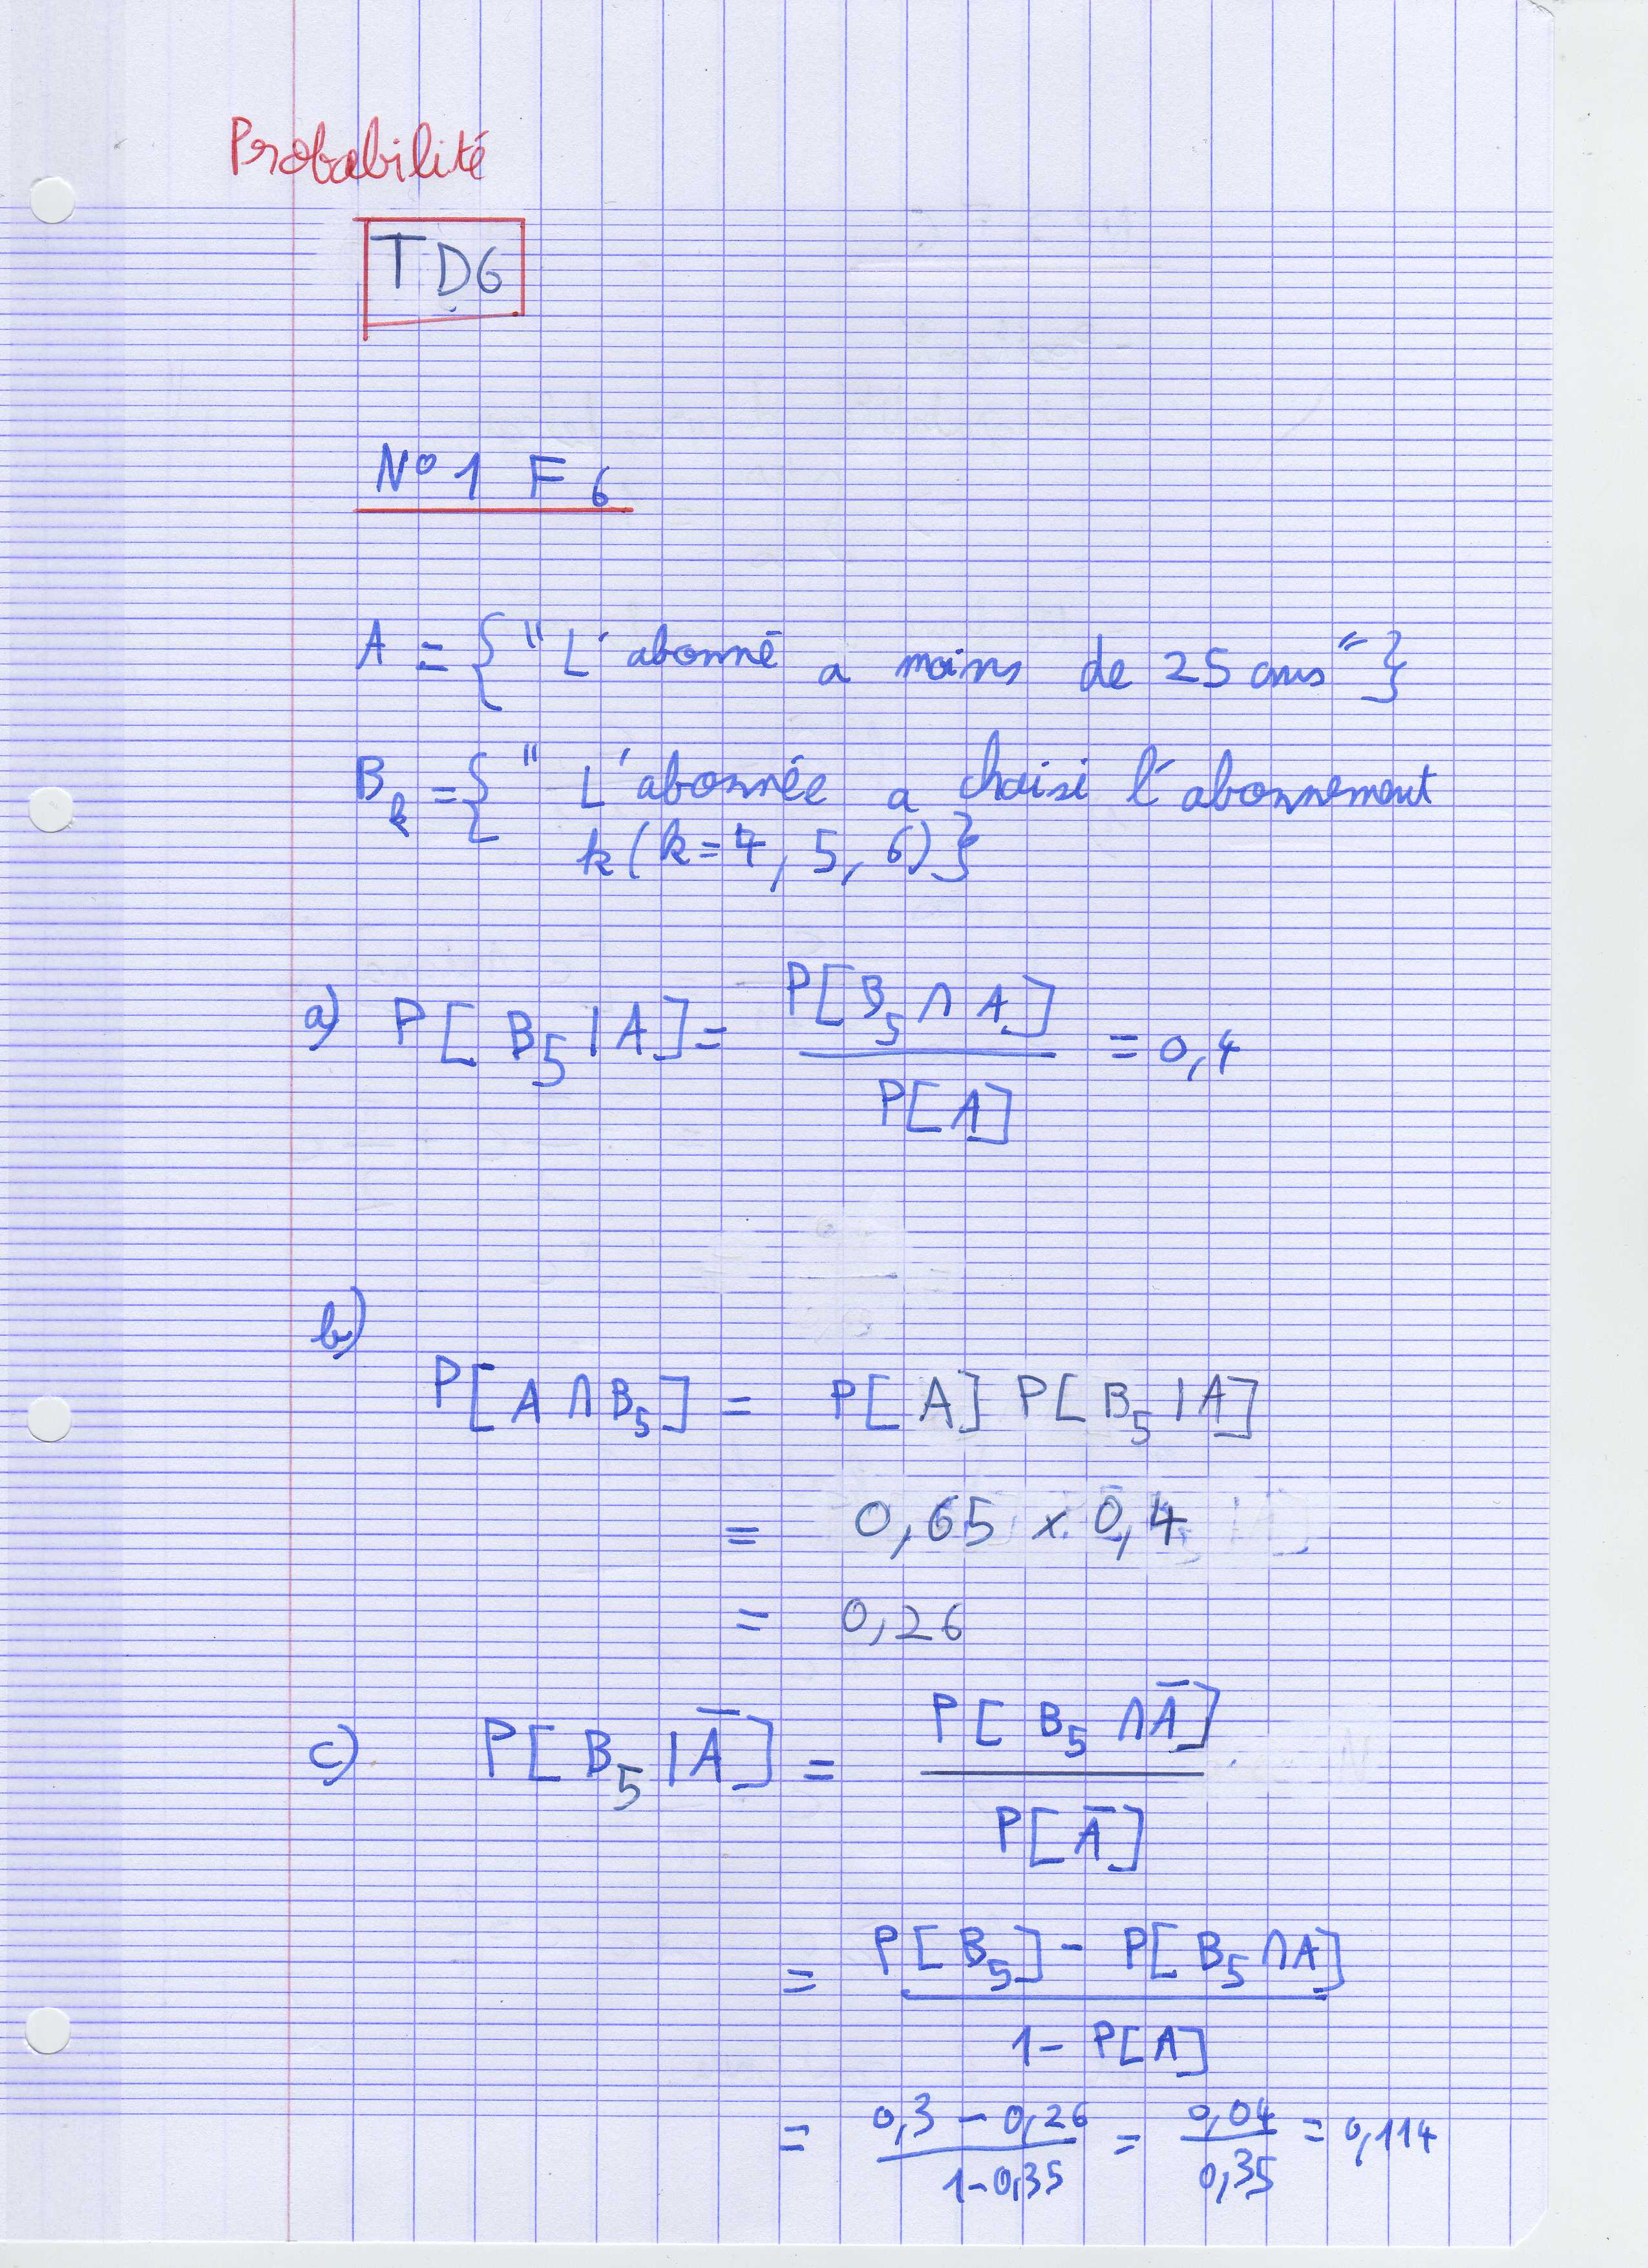 Probabilité
TD6
N° 1 F 6
A = { " L'abonné a moins de 25 ans " }
B_k = { " L'abonnée a choisi l'abonnement
k ( k = 4, 5, 6 ) }
a) P[ B_5 | A ] = P[ B_5 ∩ A ] / P[ A ] = 0,4
b)
P[ A ∩ B_5 ] = P[ A ] P[ B_5 | A ]
= 0,65 × 0,4
= 0,26
c) P[ B_5 | Ā ] = P[ B_5 ∩ Ā ] / P[ Ā ]
= P[ B_5 ] - P[ B_5 ∩ A ] / 1 - P[ A ]
= 0,3 - 0,26 / 1 - 0,35 = 0,04 / 0,35 = 0,114